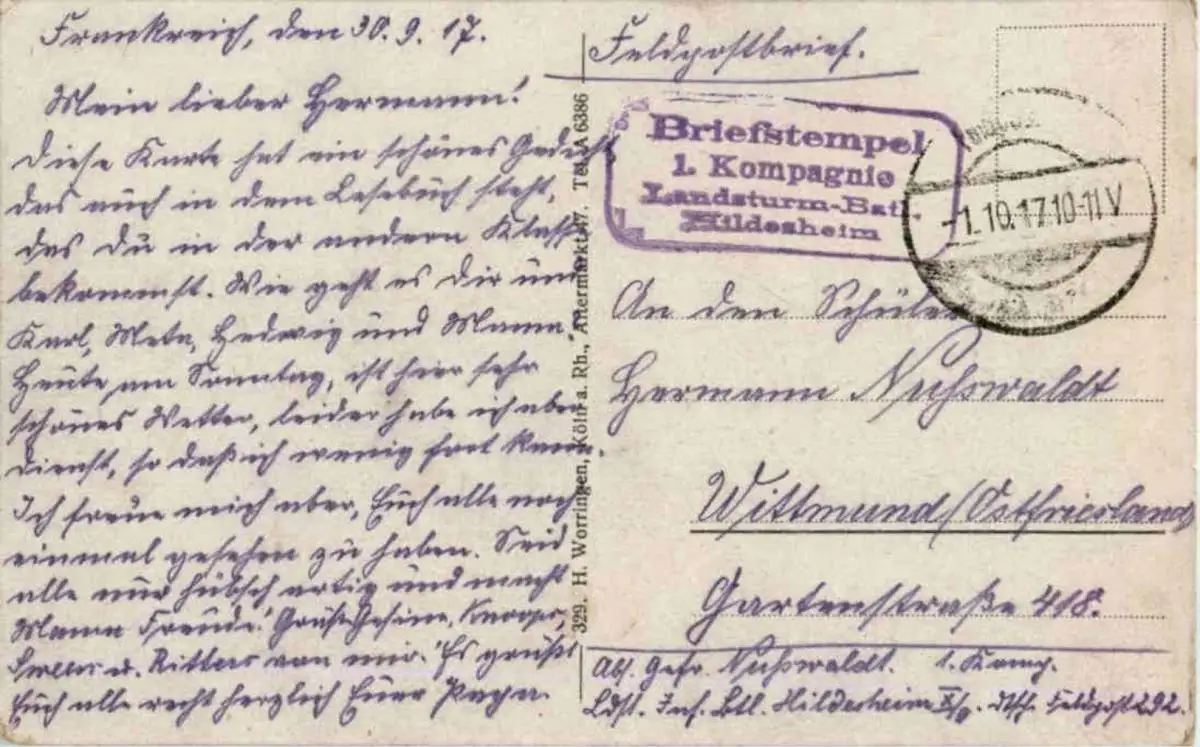 Frankreich, den 30.9.17.
Mein lieber Hermann!
Diese Karte hat ein schönes Gedicht
das auch in dem Lesebuch steht,
das du in der andern Klasse
bekommst. Wie geht es Dir und
Karl, Meta, Hedwig und Mama.
Heute, am Sonntag, ist hier sehr
schönes Wetter, leider habe ich aber
Dienst, so daß ich wenig fort kann.
Ich freue mich aber, Euch alle noch
einmal gesehen zu haben. Seid
alle nur hübsch artig und macht
Mama Freude! Grüßt Gesine,
u. Ritters von mir. Es grüßt
Euch alle recht herzlich Euer Papa.
329. H. Worringen, Köln a. Rh., Altermarkt 47. Tel. A 6386
Feldpostbrief.
Briefstempel
1. Kompagnie
Landsturm-Batl.
Hildesheim
-1.10.17 10-11 V
An den Schüler
Hermann Nußwaldt
Wittmund (Ostfriesland)
Gartenstraße 418.
Abs. Gefr. Nußwaldt. 1. Komp.
Ldst. Inf. Btl. Hildesheim dtsch. Feldpost 292.